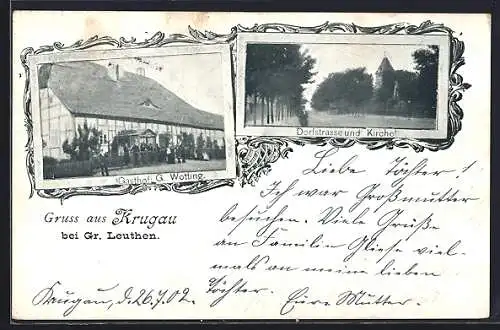 Gasthof G. Wotting.
Dorfstrasse und Kirchof
Gruss aus Krugau
bei Gr. Leuthen.
Liebe Töchter!
Ich war Großmutter
besuchen. Viele Grüße
an Familien Gliese viel-
mals an meine lieben
Töchter. Eure Mutter.
Krugau, d. 26.7.02.